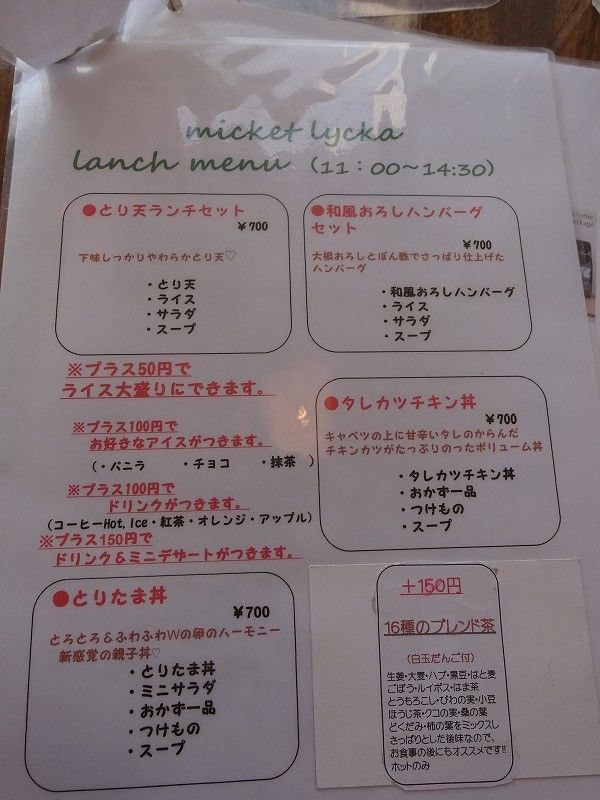 micket lycka
lanch menu (11：00～14:30)
●とり天ランチセット
￥700
下味しっかりやわらかとり天♡
・とり天
・ライス
・サラダ
・スープ
●和風おろしハンバーグ
セット
￥700
大根おろしとぽん酢でさっぱり仕上げた
ハンバーグ
・和風おろしハンバーグ
・ライス
・サラダ
・スープ
※プラス50円で
ライス大盛りにできます。
※プラス100円で
お好きなアイスがつきます。
（・バニラ ・チョコ ・抹茶 ）
※プラス100円で
ドリンクがつきます。
(コーヒーHot,Ice・紅茶・オレンジ・アップル)
※プラス150円で
ドリンク＆ミニデザートがつきます。
●タレカツチキン丼
￥700
キャベツの上に甘辛いタレのからんだ
チキンカツがたっぷりのったボリューム丼
・タレカツチキン丼
・おかず一品
・つけもの
・スープ
●とりたま丼
￥700
とろとろ＆ふわふわWの卵のハーモニー
新感覚の親子丼♡
・とりたま丼
・ミニサラダ
・おかず一品
・つけもの
・スープ
＋150円
16種のブレンド茶
（白玉だんご付）
生姜・大麦・ハブ・黒豆・はと麦
ごぼう・ルイボス・はま茶
とうもろこし・びわの実・小豆
ほうじ茶・クコの実・桑の葉
どくだみ・柿の葉をミックスし
さっぱりとした後味なので、
お食事の後にもオススメです!!
ホットのみ